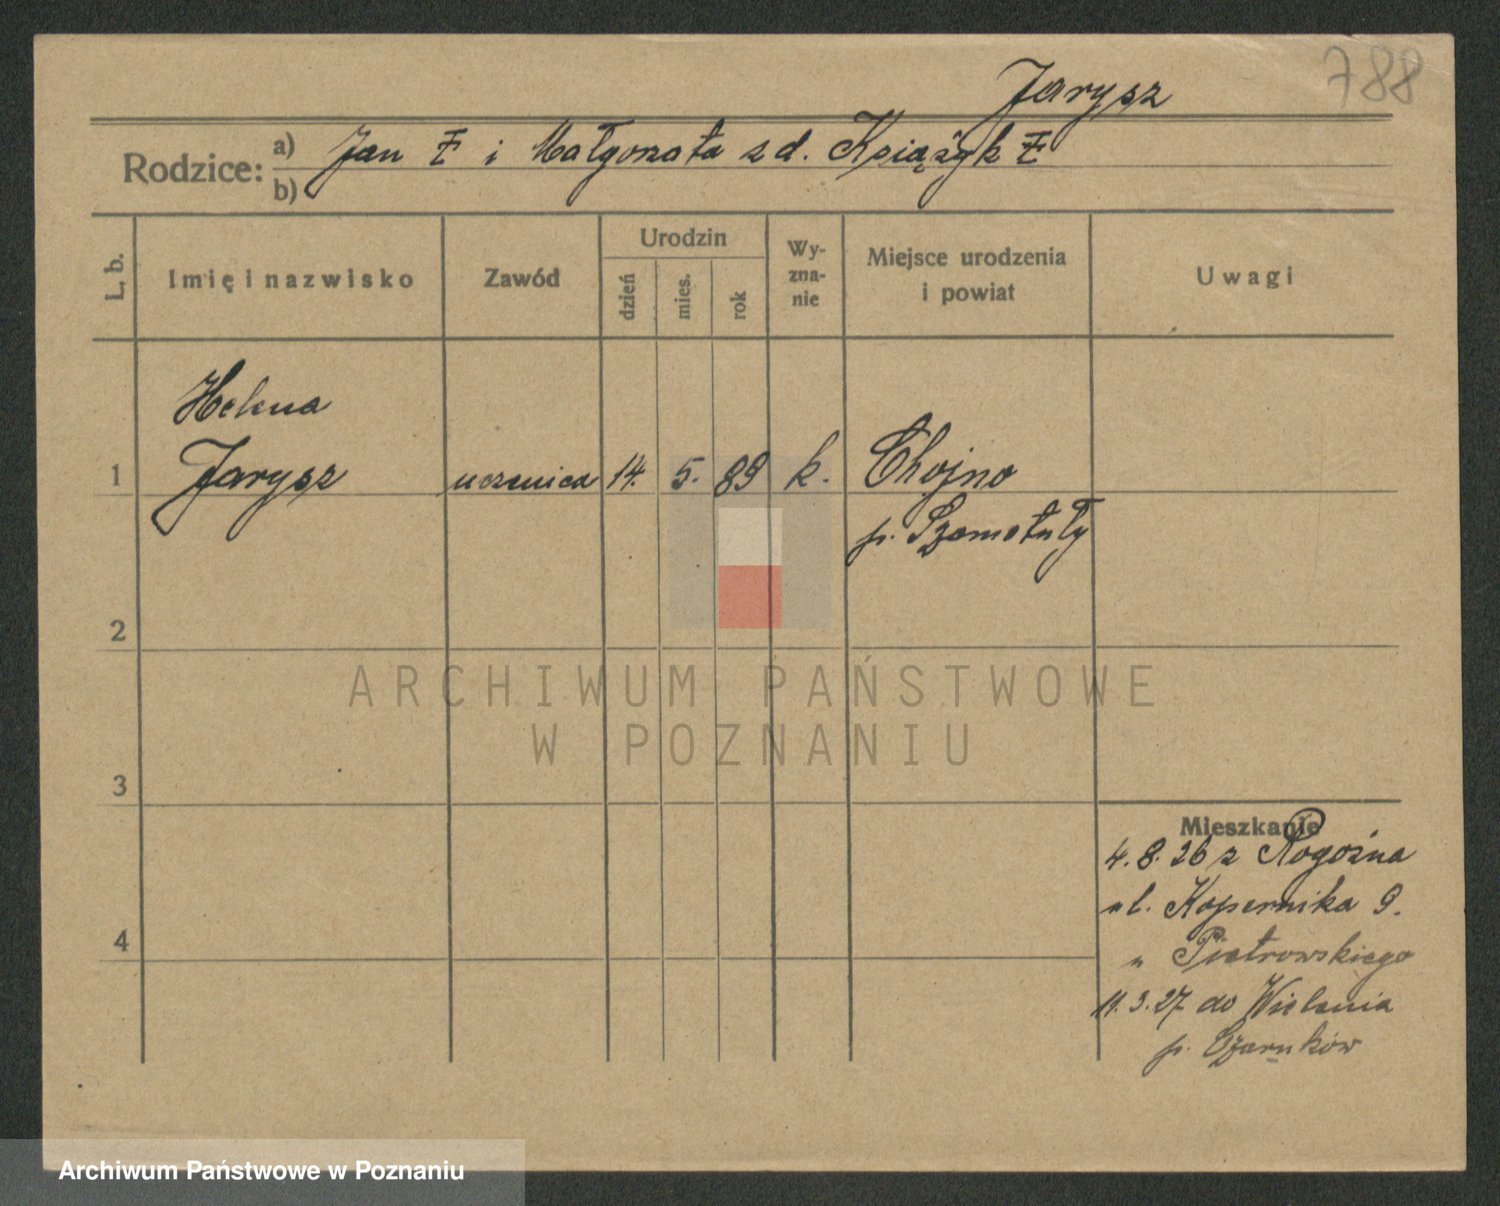 788
Jarysz
Rodzice: a) Jan i Małgorzata z d. Książyk
b)
L. b. Imię i nazwisko Zawód Urodzin dzień mies. rok Wyznanie Miejsce urodzenia i powiat Uwagi
Helena
1 Jarysz uczenica 14. 5. 89 k. Chojno
p. Szamotuły
2
3
Mieszkanie
4. 8. 26 z Rogoźna
ul. Kopernika 9.
4 " Piotrowskiego
11. 3. 27 do Wielenia
p. Czarnków
ARCHIWUM PAŃSTWOWE
W POZNANIU
Archiwum Państwowe w Poznaniu